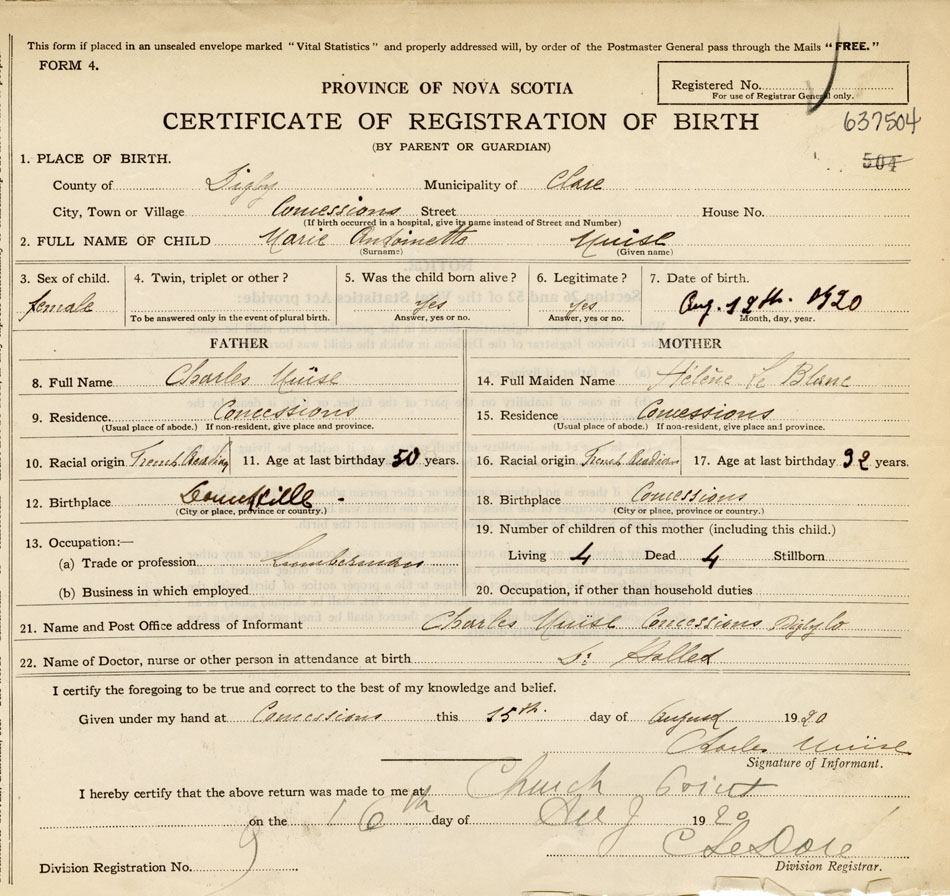 This form if placed in an unsealed envelope marked "Vital Statistics" and properly addressed will, by order of the Postmaster General pass through the Mails "FREE."
FORM 4.
Registered No.
For use of Registrar General only.
PROVINCE OF NOVA SCOTIA
CERTIFICATE OF REGISTRATION OF BIRTH 637504
(BY PARENT OR GUARDIAN)
504
1. PLACE OF BIRTH.
County of Digby Municipality of Clare
City, Town or Village Concessions Street House No.
(If birth occurred in a hospital, give its name instead of Street and Number)
2. FULL NAME OF CHILD Marie Antoinette Muise
(Surname) (Given name)
3. Sex of child. 4. Twin, triplet or other? 5. Was the child born alive? 6. Legitimate? 7. Date of birth.
female Yes Yes Aug. 12th. 1920
To be answered only in the event of plural birth. Answer, yes or no. Answer, yes or no. Month, day, year.
FATHER MOTHER
8. Full Name Charles Muise 14. Full Maiden Name Hélène Le Blanc
9. Residence Concessions 15. Residence Concessions
(Usual place of abode.) If non-resident, give place and province. (Usual place of abode.) If non-resident, give place and province.
10. Racial origin French Acadian 11. Age at last birthday 50 years. 16. Racial origin French Acadian 17. Age at last birthday 32 years.
12. Birthplace 18. Birthplace Concessions
(City or place, province or country.) (City or place, province or country.)
19. Number of children of this mother (including this child.)
13. Occupation:—
(a) Trade or profession Lumberman Living 4 Dead 4 Stillborn
(b) Business in which employed 20. Occupation, if other than household duties
21. Name and Post Office address of Informant Charles Muise Concessions Digby Co
22. Name of Doctor, nurse or other person in attendance at birth Dr.
I certify the foregoing to be true and correct to the best of my knowledge and belief.
Given under my hand at Concessions this 15th. day of August 1920
Charles Muise
Signature of Informant.
I hereby certify that the above return was made to me at Church Point
on the 16th day of 1920
Division Registration No. 9
Division Registrar.